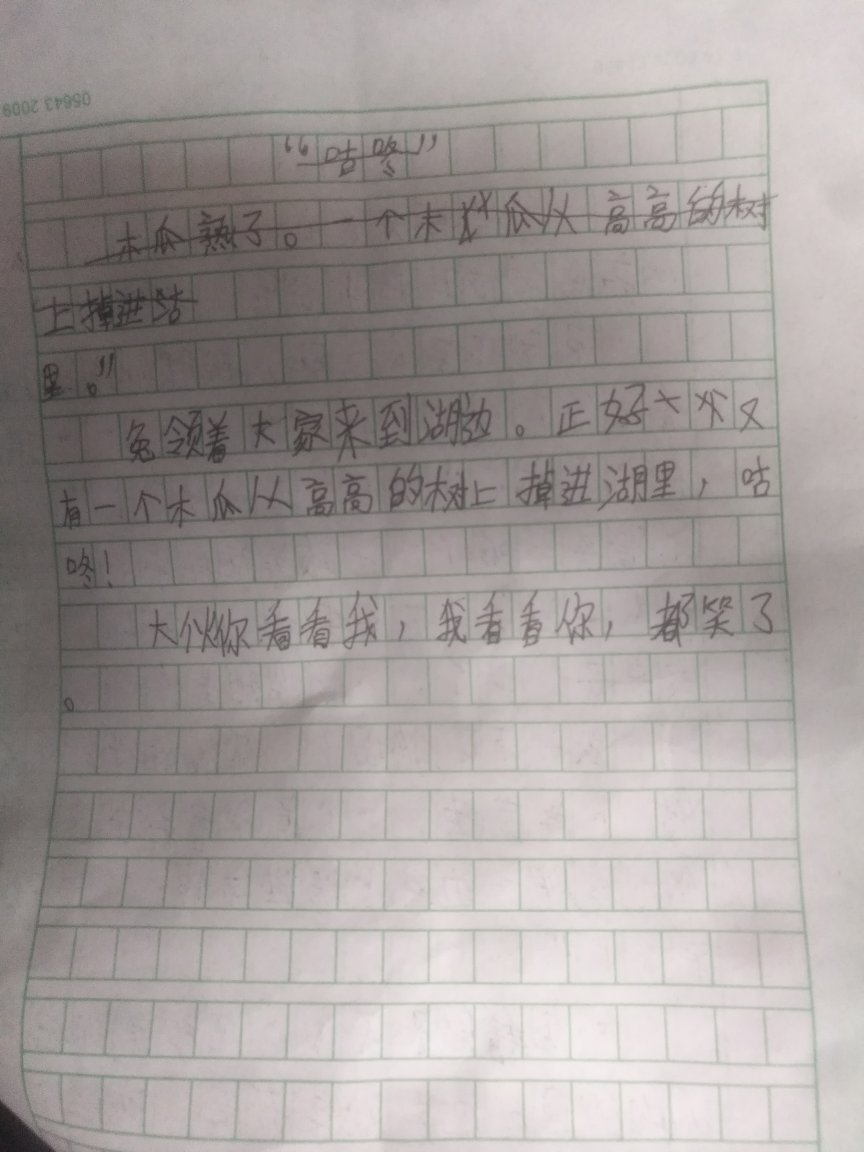 05643 2009
“咕咚”
木瓜熟了。一个木瓜从高高的树
上掉进咕
里。”
兔领着大家来到湖边。正好又
有一个木瓜从高高的树上掉进湖里，咕
咚！
大伙你看看我，我看看你，都笑了
。